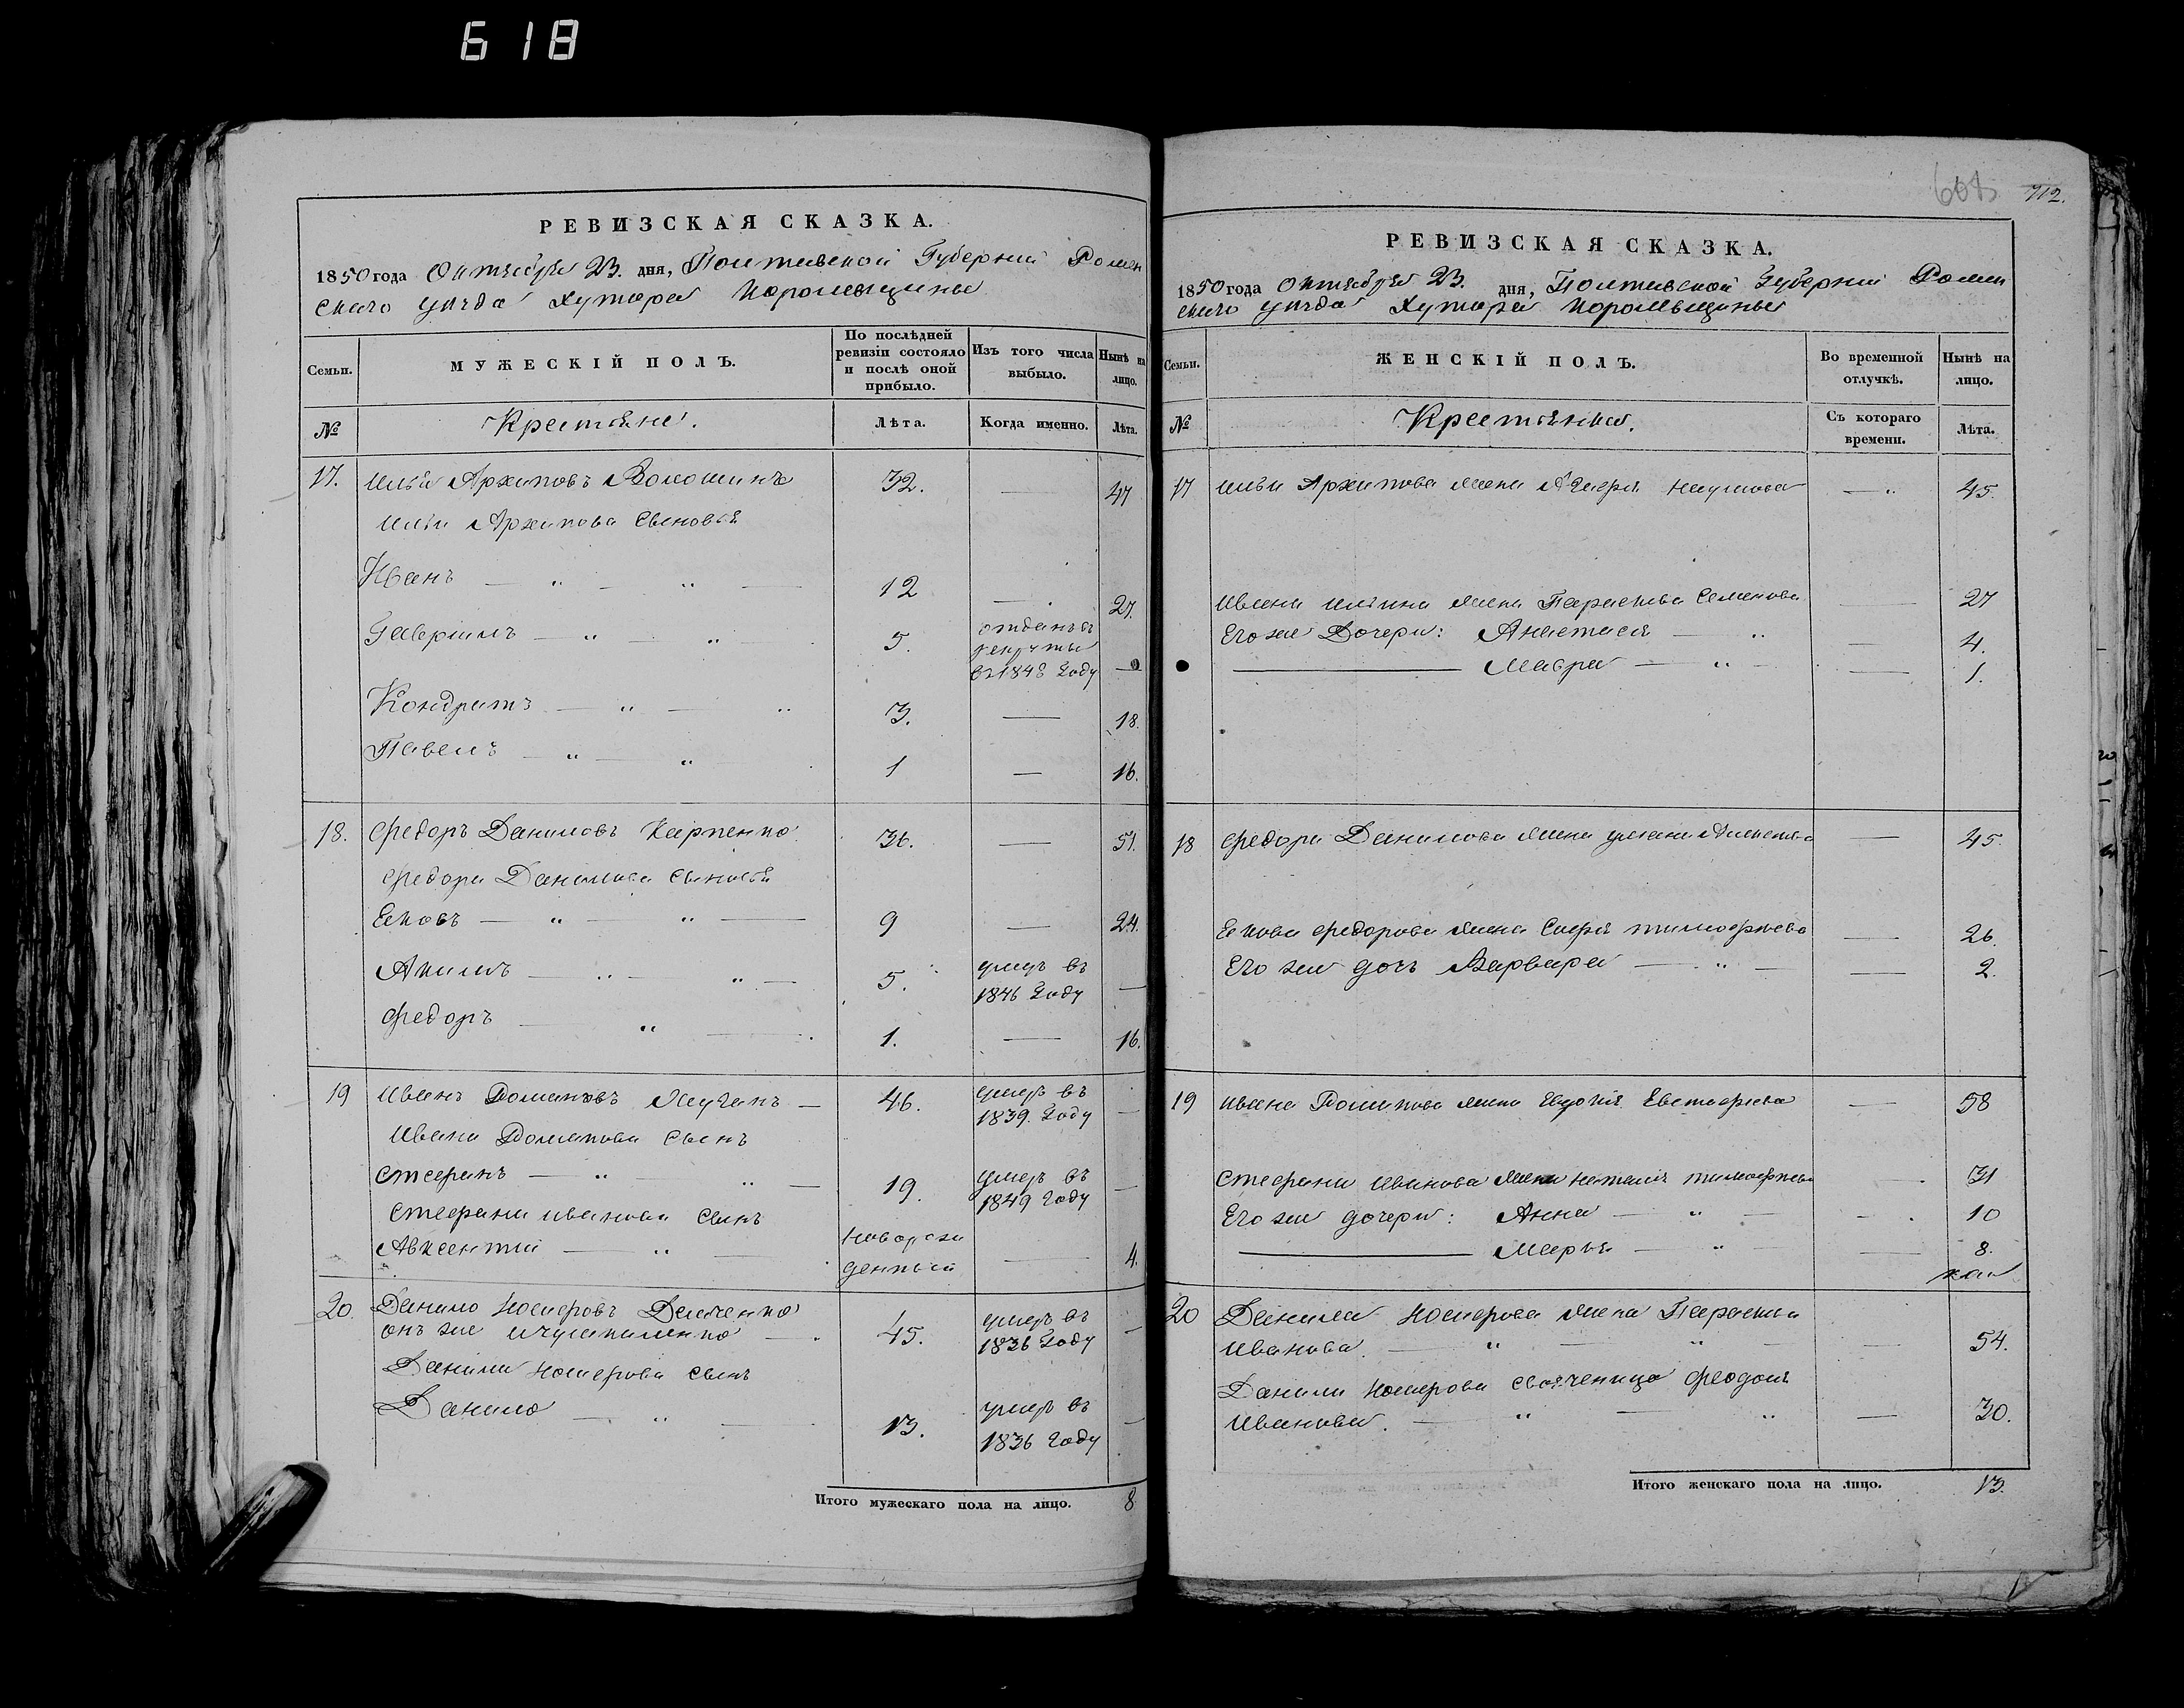 618
608
712.
РЕВИЗСКАЯ СКАЗКА.
1850 года Октября 23. дня, Полтавской Губерніи Ромен
скаго уѣзда Хутора Королевщины
Семьи. МУЖЕСКІЙ ПОЛЪ. По послѣдней ревизіи состояло и послѣ оной прибыло. Изъ того числа выбыло. Нынѣ на лицо.
№ Крестьяне. Лѣта. Когда именно. Лѣта.
17. Илья Архиповъ Волошинъ 32. — 47
Ильи Архипова сыновья
Иванъ — " — " — 12 — 27.
Гавріилъ — " — " 5. отданъ въ рекруты въ 1848 Году —
Кондратъ — " — " 3. — 18.
Павелъ — " — " 1 — 16.
18. Федоръ Даниловъ Карпенко 36. — 51.
Федора Данилова сыновья
Яковъ — " — " — 9 — 24.
Акимъ — " — " — 5. умеръ въ 1846 Году —
Федоръ — " — 1. — 16.
19 Иванъ Домановъ — 46. умеръ въ 1839. Году —
Ивана Доманова сынъ
Стефанъ — " " — 19. умеръ въ 1849 Году —
Стефана Иванова сынъ
Авксентій — " — новорожденный — 4.
20. Данило — 45. умеръ въ 1836 Году —
онъ же
Данила сынъ
Данило — " — 13. умеръ въ 1836 Году —
Итого мужескаго пола на лицо. 8
РЕВИЗСКАЯ СКАЗКА.
1850 года Октября 23. дня, Полтавской Губерніи Ромен
скаго уѣзда Хутора Королевщины
Семьи. ЖЕНСКІЙ ПОЛЪ. Во временной отлучкѣ. Нынѣ на лицо.
№ Крестьянки. Съ котораго времени. Лѣта.
17 Ильи Архипова жена Наумова — " 45.
Ивана Ильина жена Параскева Семенова — 27
Его же Дочери: Анастасія — " — 4.
— Мавра — " — — 1.
18 Федора Данилова жена — 45.
Якова Федорова жена Софія Тимофѣева — 26.
Его же дочь Варвара — " — — 2.
19 Ивана Доманова жена Евдокія Евстафіева — 58
Стефана Иванова жена Наталія Тимофѣева — 31
Его же дочери: Анна — " — — 10
— Марья — " — — 8.
20 Данила жена Параскева
Иванова. — " — " — — 54.
Данила свояченица Феодосія
Иванова. — " — " — 30.
Итого женскаго пола на лицо. 13.